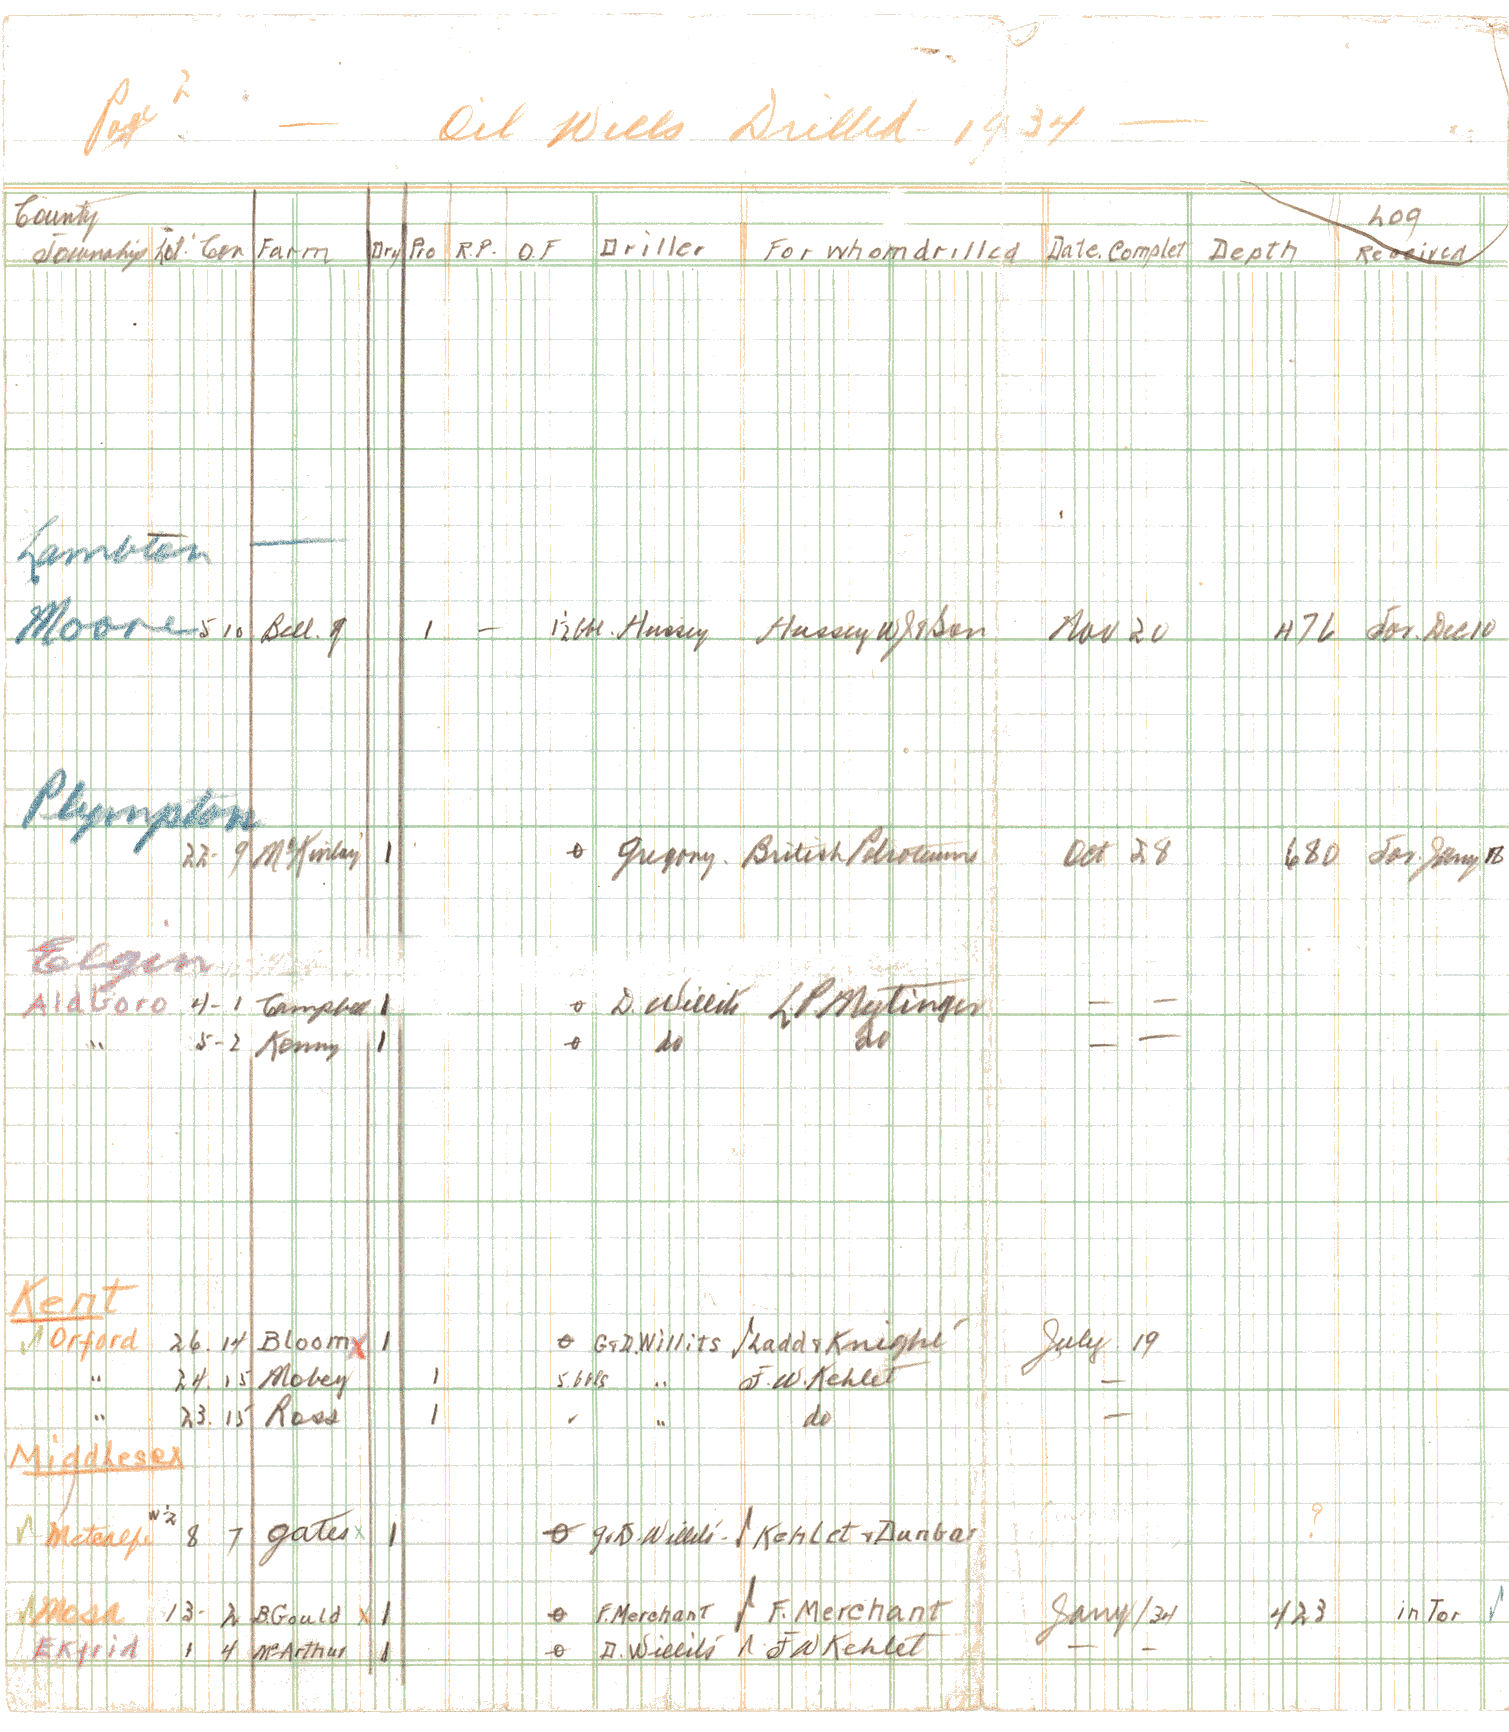 Page 2 — Oil Wells Drilled - 1934 —
County Log
Township Lot. Con Farm Dry Pro R.P. O.F Driller For whom drilled Date. Complet Depth Received
Lambton —
Moore 5 10 Bell. 1 — 1½ bbl. Hussey Hussey W J & Son Nov 20 476 Tor. Dec 10
Plympton
22- 9 McKinlay 1 0 Gregory. British Petroleums Oct 28 680 Tor. Jany
Elgin
Aldboro 4-1 Campbell 1 0 D. Willits L P. Mytinger — —
" 5-2 Kenny 1 0 do do — —
Kent
√ Orford 26. 14 Bloom x 1 0 G & D. Willits √ Ladd & Knight July 19
" 24. 15 Mobey 1 5. bbls " J. W. Kehlet —
" 23. 15 Ross 1 " do —
Middlesex
√ Metcalfe W½ 8 7 Gates x 1 0 G & D. Willits - √ Kehlet & Dunbar ?
√ Mosa 13- 2 B.Gould x 1 0 F. Merchant √ F. Merchant Jany/34 423 in Tor √
Ekfrid 1 4 McArthur 1 0 D. Willits √ J W Kehlet — —